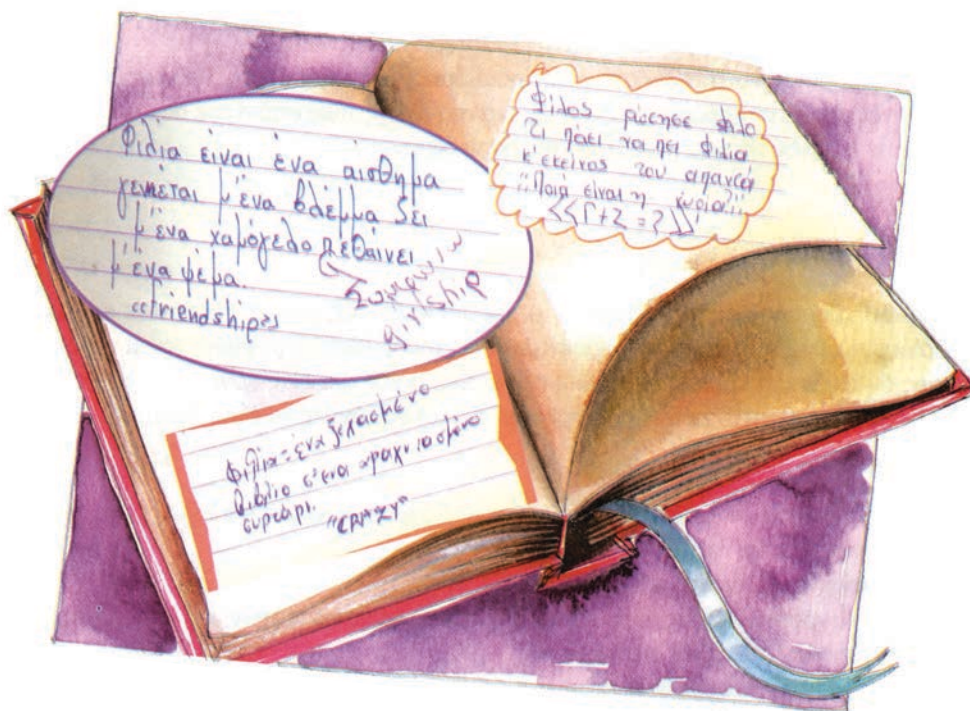 Φιλία είναι ένα αίσθημα
γεννιέται μ' ένα βλέμμα ζει
μ' ένα χαμόγελο πεθαίνει
μ' ένα ψέμα.
«friendship»
Συμφωνώ
girlship
Φίλος ρώτησε φίλο
τι πάει να πει φιλία
κ' εκείνος του απαντά
;;Ποιά είναι η κυρία!;;
<<Γ+Ζ=?>>
Φιλία = ένα ξεχασμένο
βιβλίο σ' ένα αραχνιασμένο
συρτάρι.
"CRAZY"